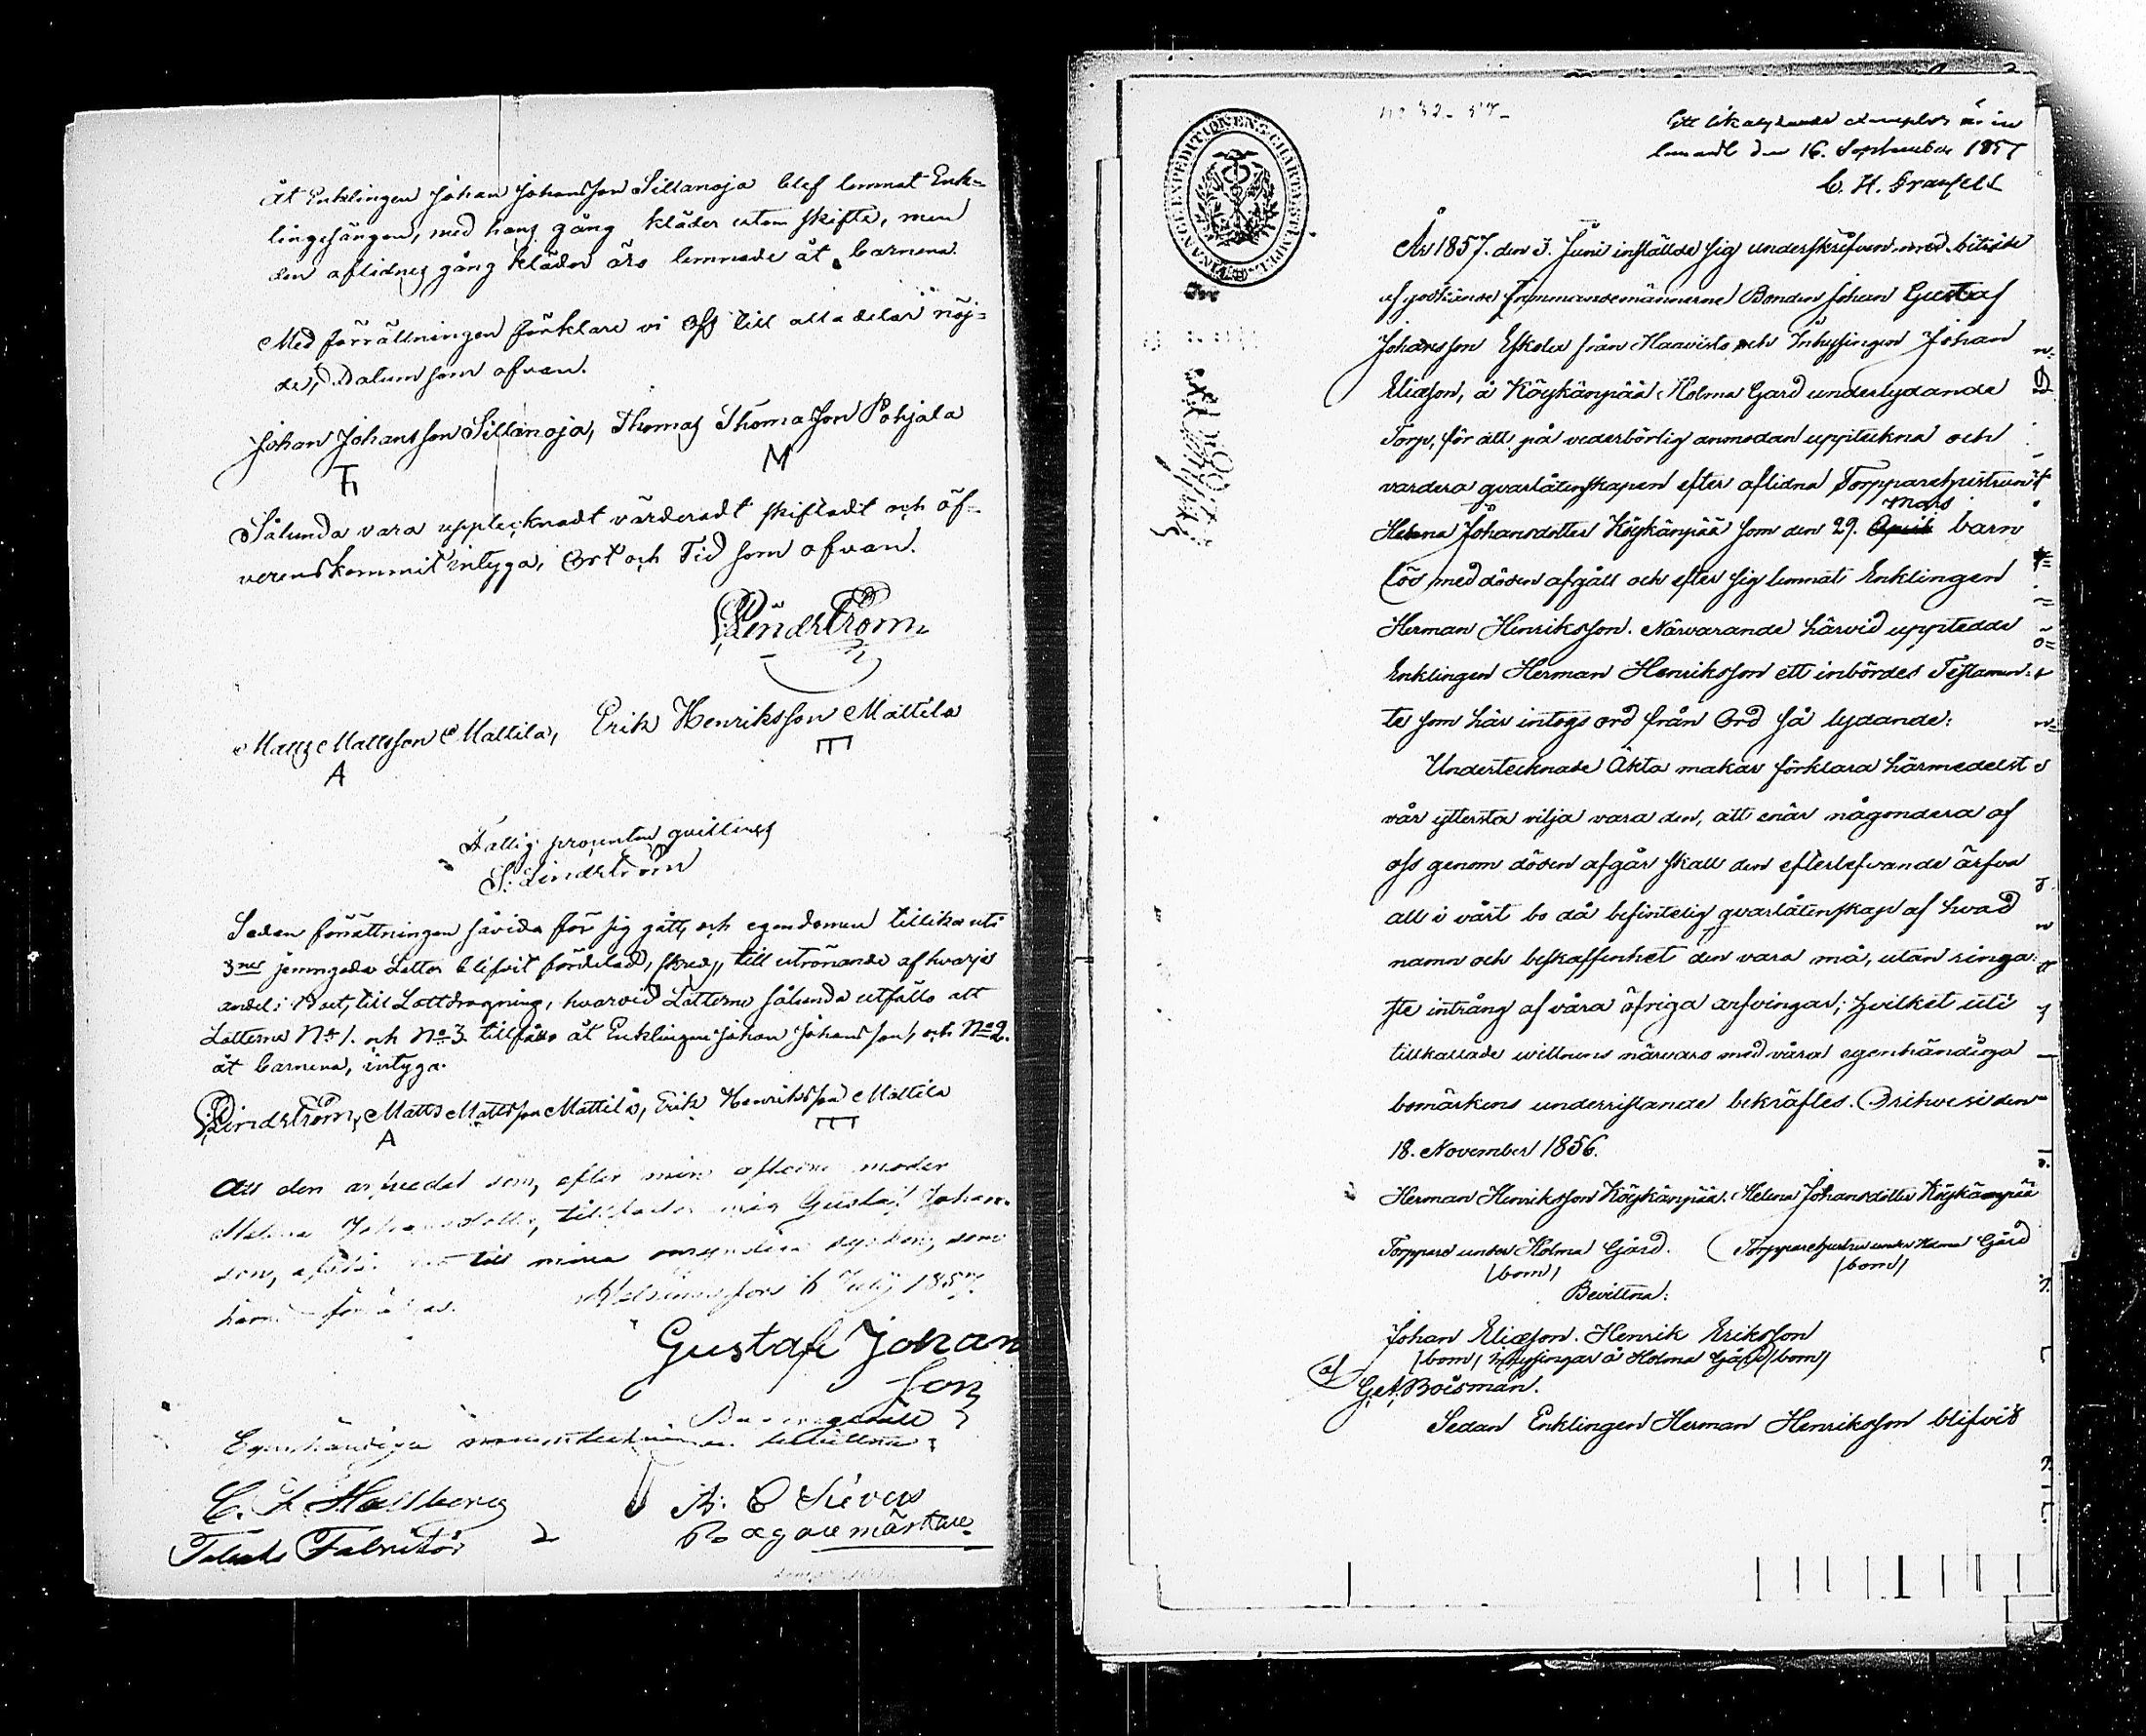 åt Enklingen Johan Johansson Sillanoja blef lemnat Enk=
lingesängen, med hans gång kläder utom skifte, men
den aflidnes gång kläder äro lemnade åt barnena.
Med förrättningen förklare vi oss till alla delar nöj=
de, Datum som ofvan.
Johan Johansson Sillanoja, Thomas Thomasson Pohjala
M
Sålunda vara upptecknadt värderadt skiftadt och öf=
verenskommit intyga, Ort och Tid som ofvan.
S Lindström
Matts Mattsson Mattila, Erik Henriksson Mattila
A
Fattig procenten qvitteras
S: Lindström
Sedan förrättningen såvida för sig gått, och egendomen tillika uti
3ne jemngoda Lotter blifvit fördelad, skreds, till utrönande af hvarjes
andel i boet, till Lottdragning, hvarvid Lotterne sålunda utföllo att
Lotterne No 1. och No 3. tillföllo åt Enklingen Johan Johansson, och No 2.
åt barnena, intyga.
S Lindström, Matts Mattsson Mattila, Erik Henriksson Mattila
A
Att den arfvedel som, efter min aflidne moder
Helena Johansdotter, mig Gustaf Johan-
son, till mina omyndiga syskon, som
Helsingfors 6 July 1857.
Gustaf Johan
son
Egenhändiga bevittna:
C. F. Hallberg A. E Sievers
Tobaks Fabrikör Bagare mästare
No 32 - 57 -
Ett lika lydande exemplar är in
lemnadt den 16. September 1857
FINANCE EXPEDITIONENS CHARTÆ STEMPEL
År 1857. den 3. Juni inställde sig underskrifven med biträde
af godkände Främmandemännerne Bonden Johan Gustaf
Johansson Eskola från Haavisto och Inhysingen Johan
Eliæsson, å Köykänpää Holma Gard underlydande
Torp, för att på vederbörlig anmodan uppteckna och
vardera qvarlåtenskapen efter aflidna Torpparehustrun
Mars
Helena Johansdotter Köykänpää som den 29. April barn
lös med döden afgått och efter sig lemnat Enklingen
Herman Henriksson. Närvarande härvid uppteddе
Enklingen Herman Henriksson ett inbördes Testamen-
te som här intogs ord från Ord så lydande:
Undertecknade Äkta makar förklara härmedelst
vår yttersta vilja vara den, att enär någondera af
oss genom döden afgår skall den efterlefvande ärfva
all i vårt bo då befintelig qvarlåtenskap af hvad
namn och beskaffenhet den vara må, utan ringa-
ste intrång af våra öfriga arfvingar; hvilket uti
tillkallade wittnens närvaro med våra egenhändiga
bomärkens underristande bekräftes. Orihvesi den
18. November 1856.
Herman Henriksson Köykänpää. Helena Johansdotter Köykänpää
Torppare under Holma Gård. Torpparehustru under Holma Gård
/bom/ /bom/
Bevittna:
Johan Eliæsson. Henrik Eriksson
/bom/ Inhysingar å Holma Gård /bom/
af
G. A. Boisman.
Sedan Enklingen Herman Henriksson blifvit